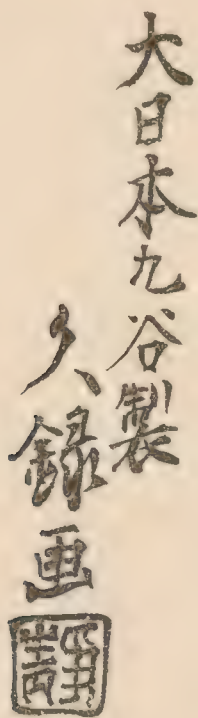 大日本九谷製
久録画